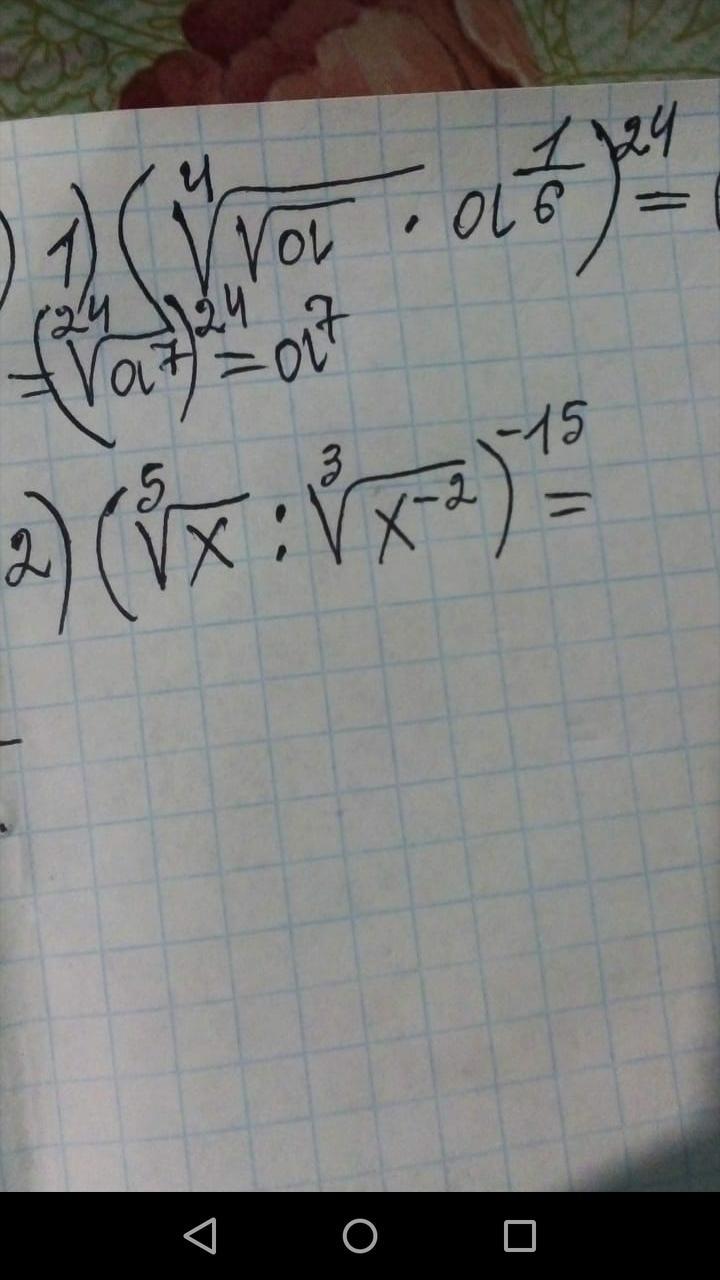 ) 1) (⁴√√a · a^(1/6))²⁴ = (
= (²⁴√a⁷)²⁴ = a⁷
2) (⁵√x : ³√x⁻²)⁻¹⁵ =